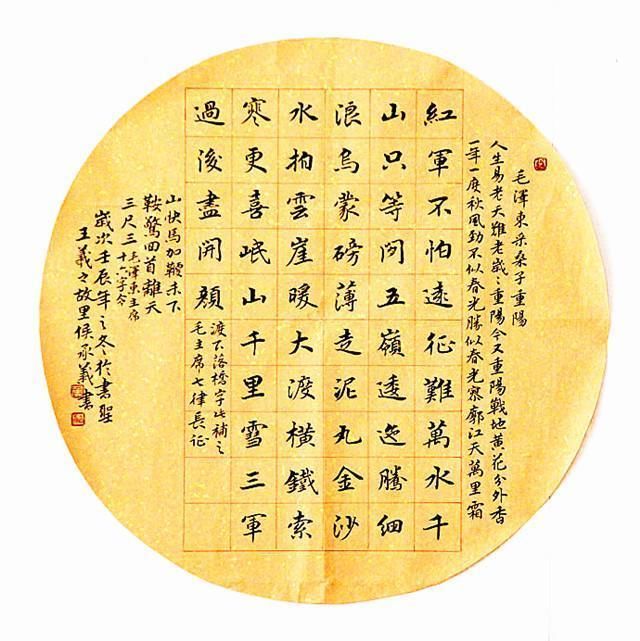 毛澤東采桑子重陽
人生易老天難老歲〻重陽今又重陽戰地黄花分外香
一年一度秋風勁不似春光勝似春光寥廓江天萬里霜
紅軍不怕遠征難萬水千
山只等閒五嶺逶迤騰細
浪烏蒙磅薄走泥丸金沙
水拍雲崖暖大渡橫鐵索
寒更喜岷山千里雪三軍
過後盡開顏
渡下落橋字此補之
毛主席七律長征
山快馬加鞭未下
鞍驚回首離天
三尺三
毛澤東主席
十六字令
歲次壬辰年之冬於書聖
王羲之故里侯承義書